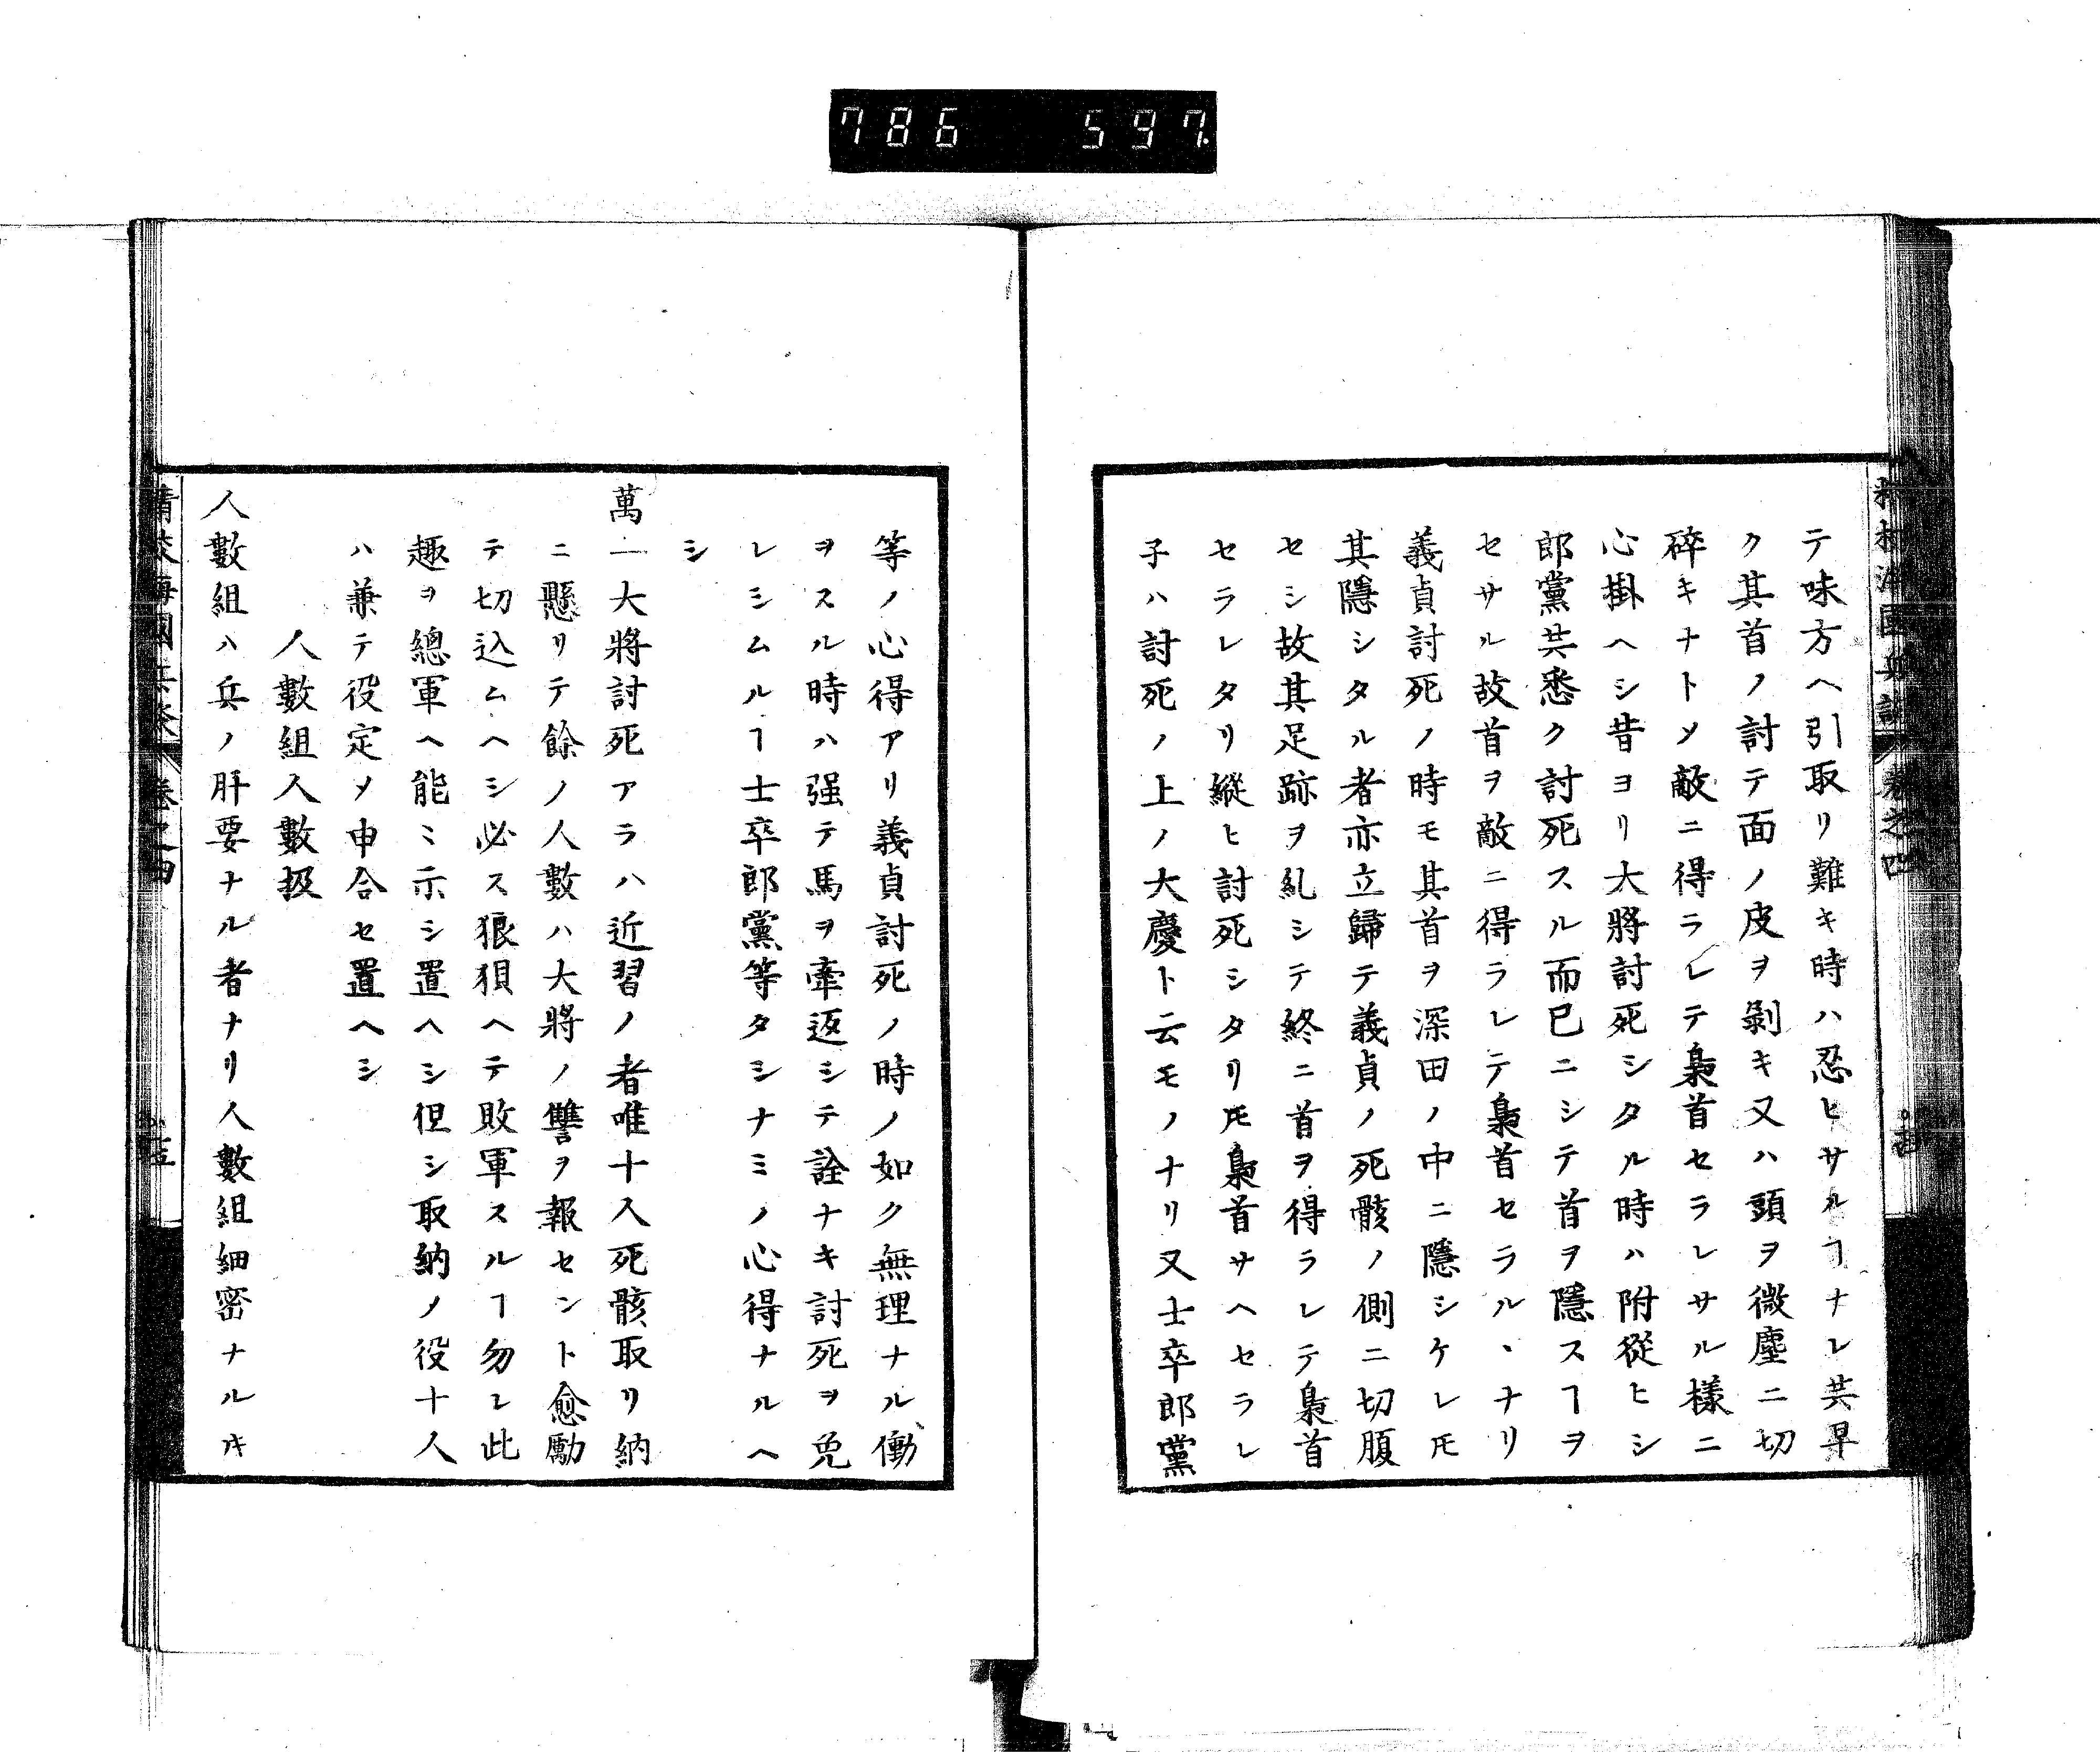 786 597
テ味方ヘ引取リ難キ時ハ忍ヒサルヿナレ共早
ク其首ノ討テ面ノ皮ヲ剝キ又ハ頭ヲ微塵ニ切
碎キナトメ敵ニ得ラレテ梟首セラレサル樣ニ
心掛ヘシ昔ヨリ大將討死シタル時ハ附從ヒシ
郎黨共悉ク討死スル而已ニシテ首ヲ隱スヿヲ
セサル故首ヲ敵ニ得ラレテ梟首セラル、ナリ
義貞討死ノ時モ其首ヲ深田ノ中ニ隱シケレ𪜈
其隱シタル者亦立歸テ義貞ノ死骸ノ側ニ切腹
セシ故其足跡ヲ糺シテ終ニ首ヲ得ラレテ梟首
セラレタリ縱ヒ討死シタリ𪜈梟首サヘセラレ
子ハ討死ノ上ノ大慶ト云モノナリ又士卒郎黨
等ノ心得アリ義貞討死ノ時ノ如ク無理ナル働
ヲスル時ハ强テ馬ヲ牽返シテ詮ナキ討死ヲ免
レシムルヿ士卒郎黨等タシナミノ心得ナルヘ
シ
萬一大將討死アラハ近習ノ者唯十人死骸取リ納
ニ懸リテ餘ノ人數ハ大將ノ讐ヲ報セント愈勵
テ切込ムヘシ必ス狼狽ヘテ敗軍スルヿ勿レ此
趣ヲ總軍ヘ能ミ示シ置ヘシ但シ取納ノ役十人
ハ兼テ役定メ申合セ置ヘシ
人數組人數扱
人數組ハ兵ノ肝要ナル者ナリ人數組細密ナルキ
海國兵談 卷之四